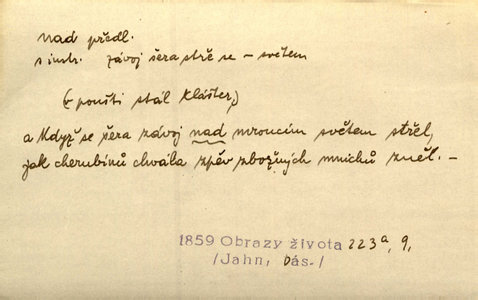 nad předl.
s instr. závoj šera stře se – světem
(v poušti stál klášter,)
a když se šera závoj nad mroucím světem střel,
jak cherubínů chvála zpěv zbožných mnichů zněl. –
1859 Obrazy života 223a, 9,
/Jahn, Bás./